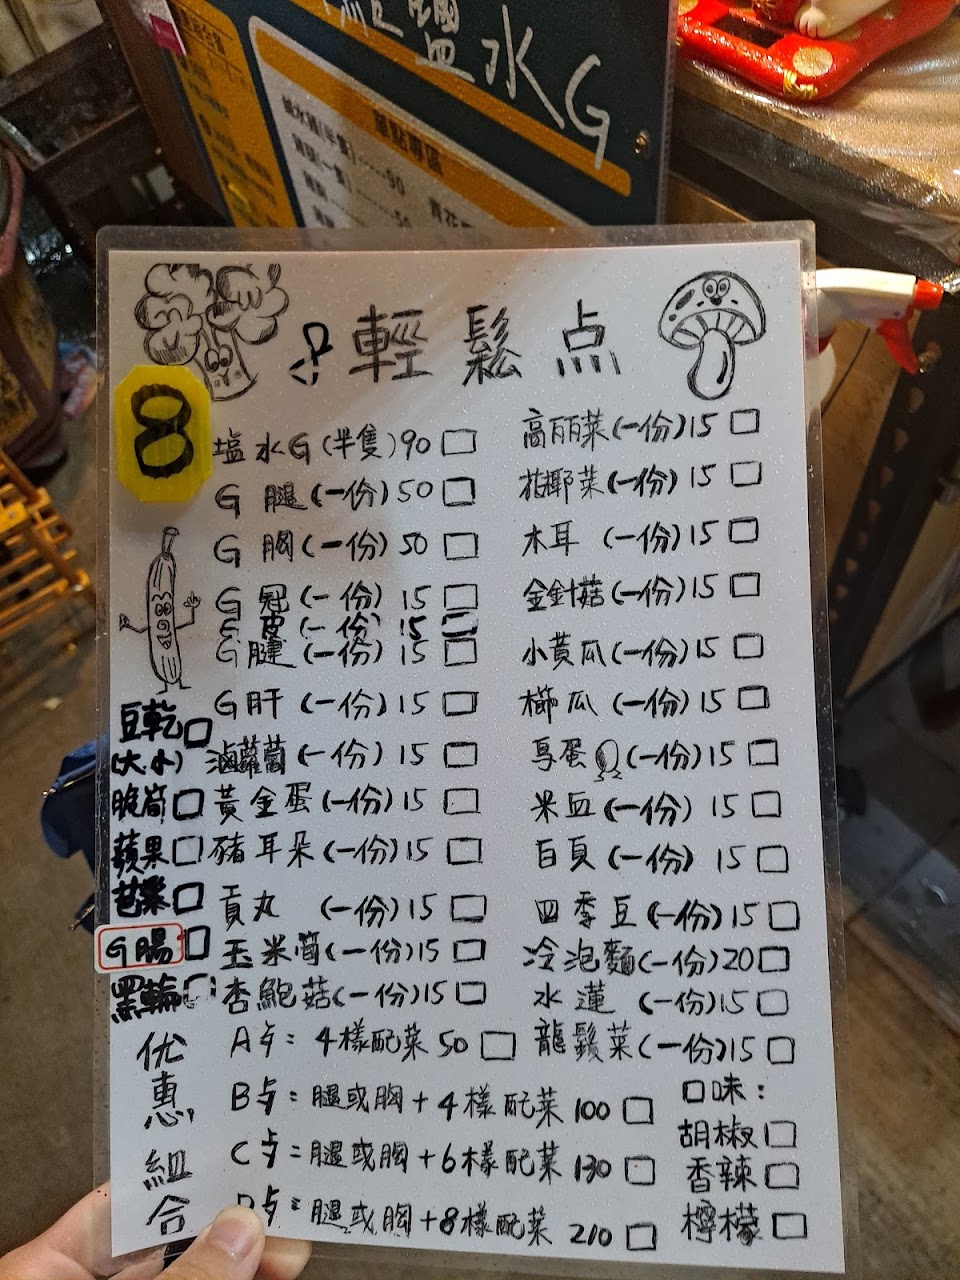 鹽水G
單點專區
鹹水雞(半隻)-----90
輕鬆点
8
塩水G(半隻)90
G腿(一份)50
G胸(一份)50
G冠(一份)15
G皮(一份)15
G腱(一份)15
G肝(一份)15
滷蘿蔔(一份)15
黃金蛋(一份)15
豬耳朵(一份)15
貢丸(一份)15
玉米筍(一份)15
杏鮑菇(一份)15
豆乾
(大.小)
脆筍
蘋果
芭樂
G腸
黑輪
高丽菜(一份)15
花椰菜(一份)15
木耳(一份)15
金針菇(一份)15
小黃瓜(一份)15
櫛瓜(一份)15
鳥蛋(一份)15
米血(一份)15
百頁(一份)15
四季豆(一份)15
冷泡麵(一份)20
水蓮(一份)15
龍鬚菜(一份)15
优惠組合
Aㄘ:4樣配菜50
Bㄘ:腿或胸+4樣配菜100
Cㄘ:腿或胸+6樣配菜130
Dㄘ:腿或胸+8樣配菜210
口味:
胡椒
香辣
檸檬